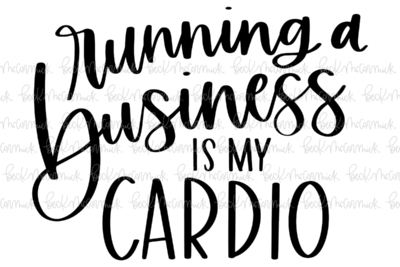 running a
business
IS MY
CARDIO